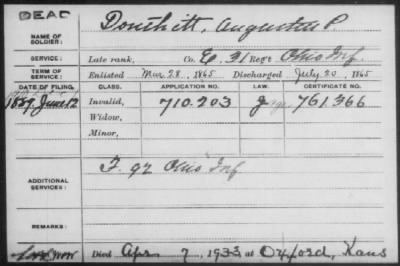 DEAD
NAME OF SOLDIER: Douthitt, Augustus P
SERVICE: Late rank, Co. E, 31 Reg't Ohio Inf.
TERM OF SERVICE: Enlisted Mar. 28, 1865 Discharged July 20, 1865
DATE OF FILING. CLASS. APPLICATION NO. LAW. CERTIFICATE NO.
1889, June 12 Invalid, 710.203 761.366
Widow,
Minor,
ADDITIONAL SERVICES: F. 92 Ohio Inf
REMARKS:
Died Apr 7, 1933 at Oxford, Kans